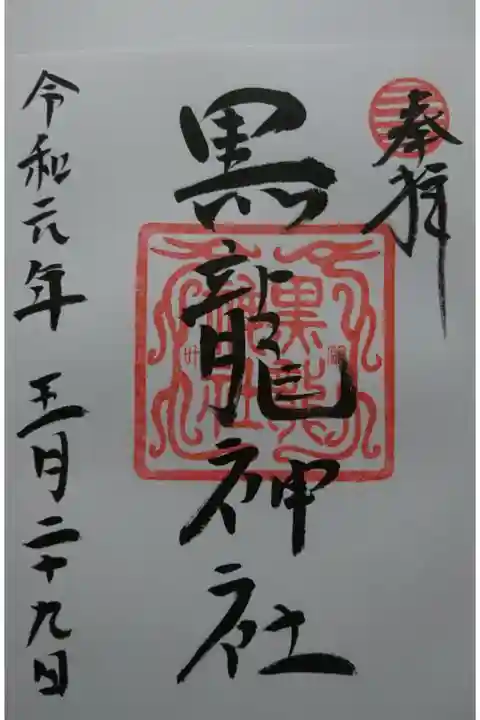 奉拝
黒龍神社
黒龍
神社
令和元年 五月二十九日